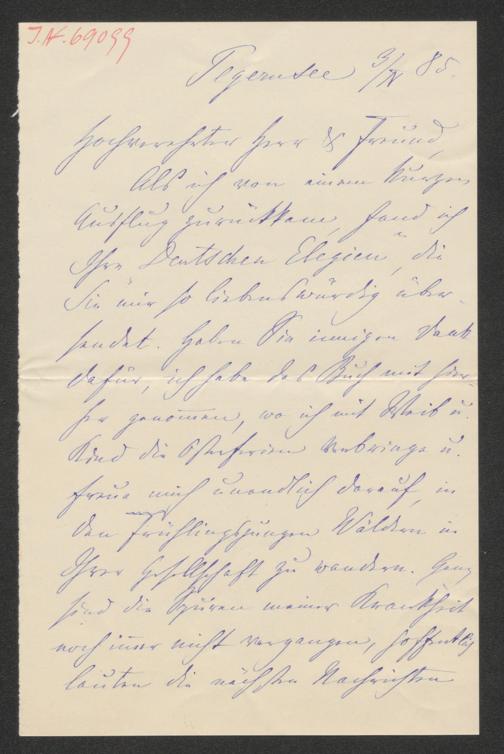 J.N. 69099
Tegernsee 3/IV 85.
Hochverehrter Herr & Freund,
Als ich von einem kurzen
Ausflug zurückkam, fand ich
Ihre "Deutschen Elegien", die
Sie mir so liebenswürdig über-
sendet. Haben Sie innigen Dank
dafür, ich habe das Buch mit hier-
her genommen, wo ich mit Weib u.
Kind die Osterferien verbringe u.
freue mich unendlich darauf, in
den frühlingsjungen Wäldern in
Ihrer Gesellschaft zu wandern. Ganz
sind die Spuren meiner Krankheit
noch im̄er nicht vergangen, hoffentlich
lauten die nächsten Nachrichten